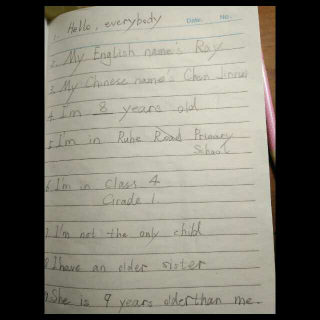 1. Hello, everybody
Date: No.
2. My English name's Ray
3. My Chinese name's Chen
4. I'm 8 years old
5. I'm in Ruhe Road Primary
School
6. I'm in Class 4
Grade 1.
7. I'm not the only child
8. I have an older sister
9. She is 9 years older than me.